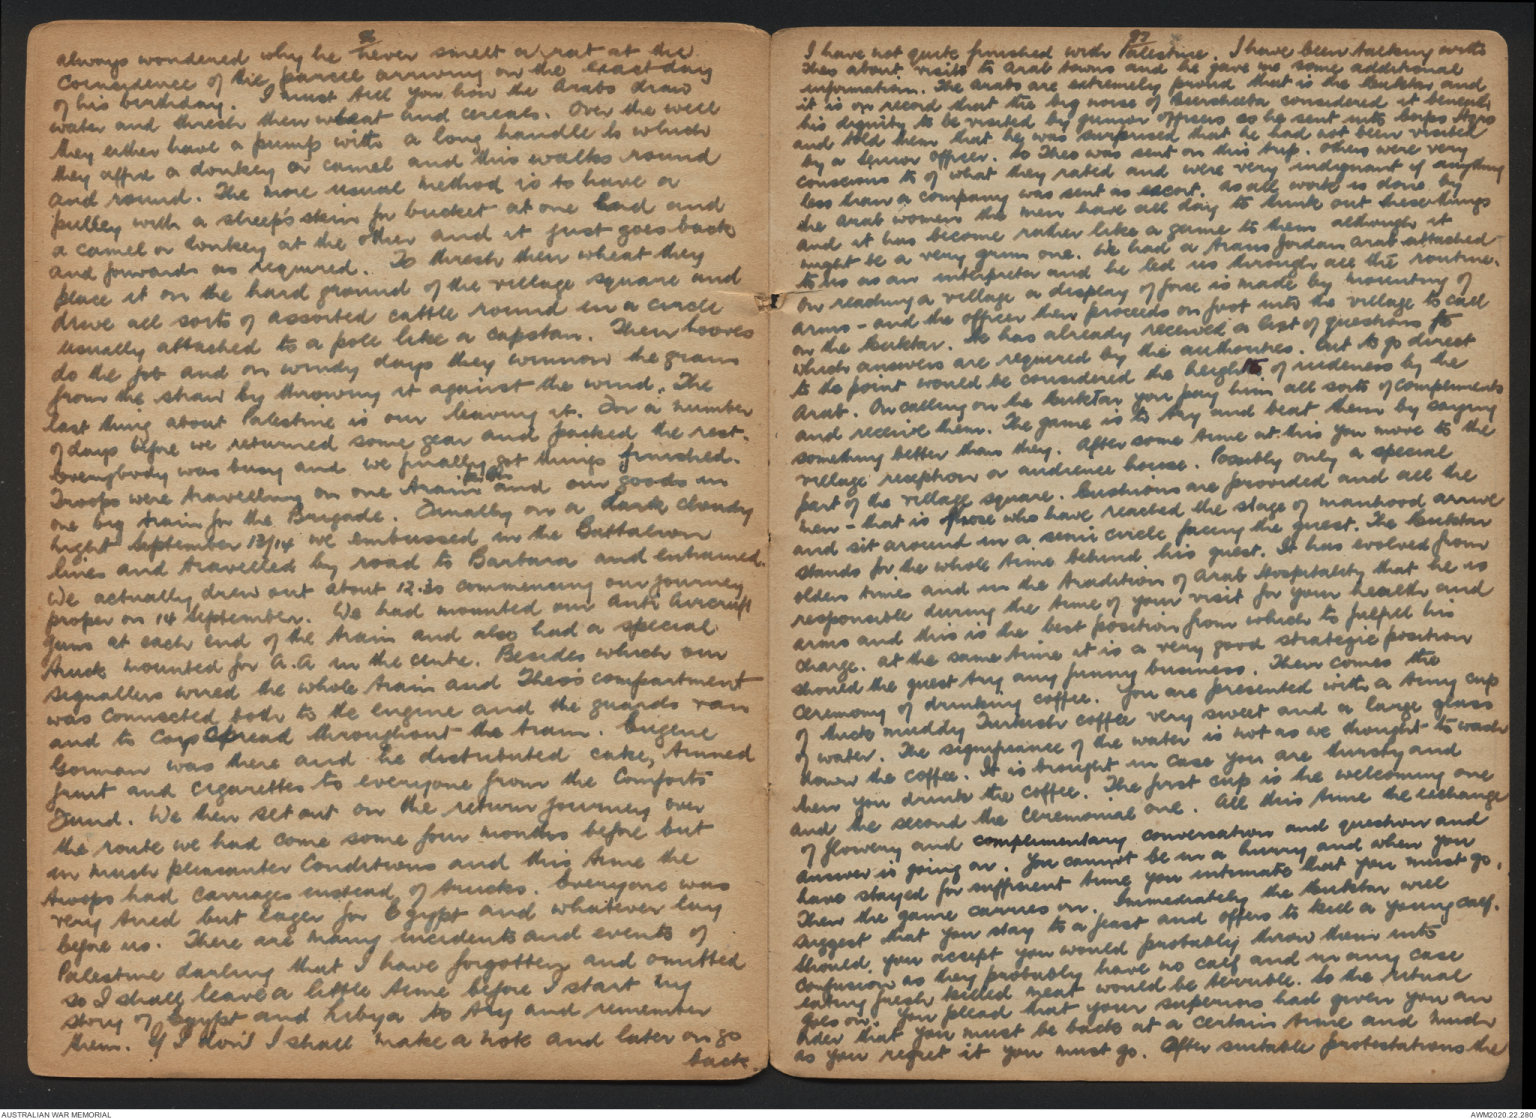 always wondered why he never smelt a rat at the
coincidence of the parcel arriving on the exact day
of his birthday. I must tell you how the Arabs draw
water and thresh their wheat and cereals. Over the well
they either have a pump with a long handle to which
they affix a donkey or camel and this walks round
and round. The more usual method is to have a
pulley with a sheep's skin for bucket at one end and
a camel or donkey at the other and it just goes back
and forwards as required. To thresh their wheat they
place it on the hard ground of the village square and
drive all sorts of assorted cattle round in a circle
usually attached to a pole like a capstan. Their hooves
do the job and on windy days they winnow the grain
from the straw by throwing it against the wind. The
last thing about Palestine is our leaving it. For a number
of days before we returned some gear and packed the rest.
Everybody was busy and we finally got things finished.
Troops were travelling on one train and our goods in
one big train for the Brigade. Finally on a dark cloudy
night September 13/14 we embussed in the Battalion
lines and travelled by road to Barbara and entrained.
We actually drew out about 12.30 commencing our journey
proper on 14 September. We had mounted our Anti Aircraft
guns at each end of the train and also had a special
truck mounted for A.A in the centre. Besides which our
signallers wired the whole train and Theo's compartment
was connected both to the engine and the guards van
and to Coys spread throughout the train. Eugene
Gorman was there and he distributed cake, tinned
fruit and cigarettes to everyone from the Comforts
Fund. We then set out on the return journey over
the route we had come some four months before but
in much pleasanter conditions and this time the
troops had carriages instead of trucks. Everyone was
very tired but eager for Egypt and whatever lay
before us. There are many incidents and events of
Palestine darling that I have forgotten and omitted
so I shall leave a little time before I start my
story of Egypt and Libya to try and remember
them. If I don't I shall make a note and later on go
back.
97
I have not quite finished with Palestine. I have been talking with
Theo about visits to Arab towns and he gave me some additional
information. The Arabs are extremely proud that is the Muktar and
it is on record that the big noise of Beersheeba considered it beneath
his dignity to be visited by junior officers so he sent into Corps Hqrs
and told them that he was surprised that he had not been visited
by a senior officer. So Theo was sent on this trip. Others were very
conscious to of what they rated and were very indignant if anything
less than a company was sent as escort. As all work is done by
the Arab women the men have all day to think out these things
and it has become rather like a game to them although it
might be a very grim one. We had a Trans Jordan Arab attached
to us as an interpreter and he led us through all the routine.
On reaching a village a display of force is made by mounting of
arms - and the officer then proceeds on foot into the village to call
on the Muktar. He has already received a list of questions to
which answers are required by the authorities. But to go direct
to the point would be considered the height of rudeness by the
Arab. On calling on the Muktar you pay him all sorts of complements
and receive them. The game is to try and beat them by saying
something better than they. After some time at this you move to the
village reception or audience house. Possibly only a special
part of the village square. Cushions are provided and all the
men - that is those who have reached the stage of manhood arrive
and sit around in a semi circle facing the guest. The Muktar
stands for the whole time behind his guest. It has evolved from
olden times and in the tradition of Arab Hospitality that he is
responsible during the time of your visit for your health and
arms and this is the best position from which to fulfil his
charge. At the same time it is a very good strategic position
should the guest try any funny business. Then comes the
ceremony of drinking coffee. You are presented with a tiny cup
of thick muddy Turkish coffee very sweet and a large glass
of water. The significance of the water is not as we thought to wash
down the coffee. It is brought in case you are thirsty and
then you drink the coffee. The first cup is the welcoming one
and the second the ceremonial one. All this time the exchange
of flowery and complimentary conversation and question and
answer is going on. You cannot be in a hurry and when you
have stayed for sufficient time you intimate that you must go.
Then the game carries on. Immediately the Muktar will
suggest that you stay to a feast and offers to kill a young calf.
Should you accept you would probably throw them into
confusion as they probably have no calf and in any case
eating fresh killed meat would be terrible. So the ritual
goes on. You plead that your superiors had given you an
order that you must be back at a certain time and much
as you regret it you must go. After suitable protestations the
AUSTRALIAN WAR MEMORIAL
AWM2020.22.280